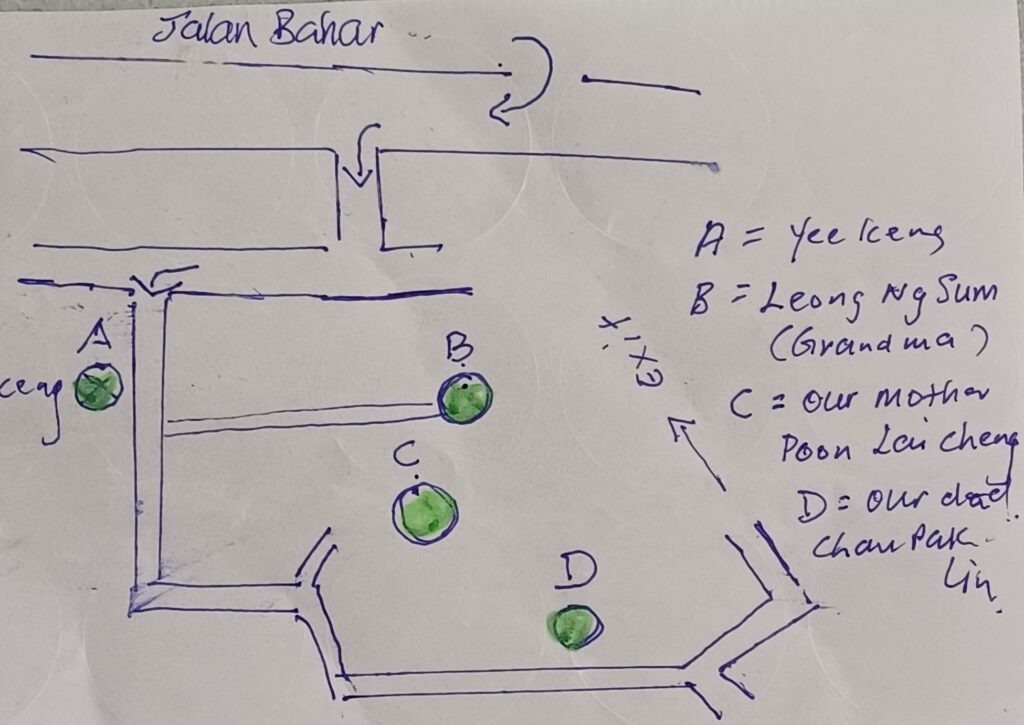 Jalan Bahar
A = Yee Keng
B = Leong Ng Sum
(Grandma)
C = our mother
Poon Lai Cheng
D = our dad
Chan Pak
Lin
EXIT
A
keng
B
C
D